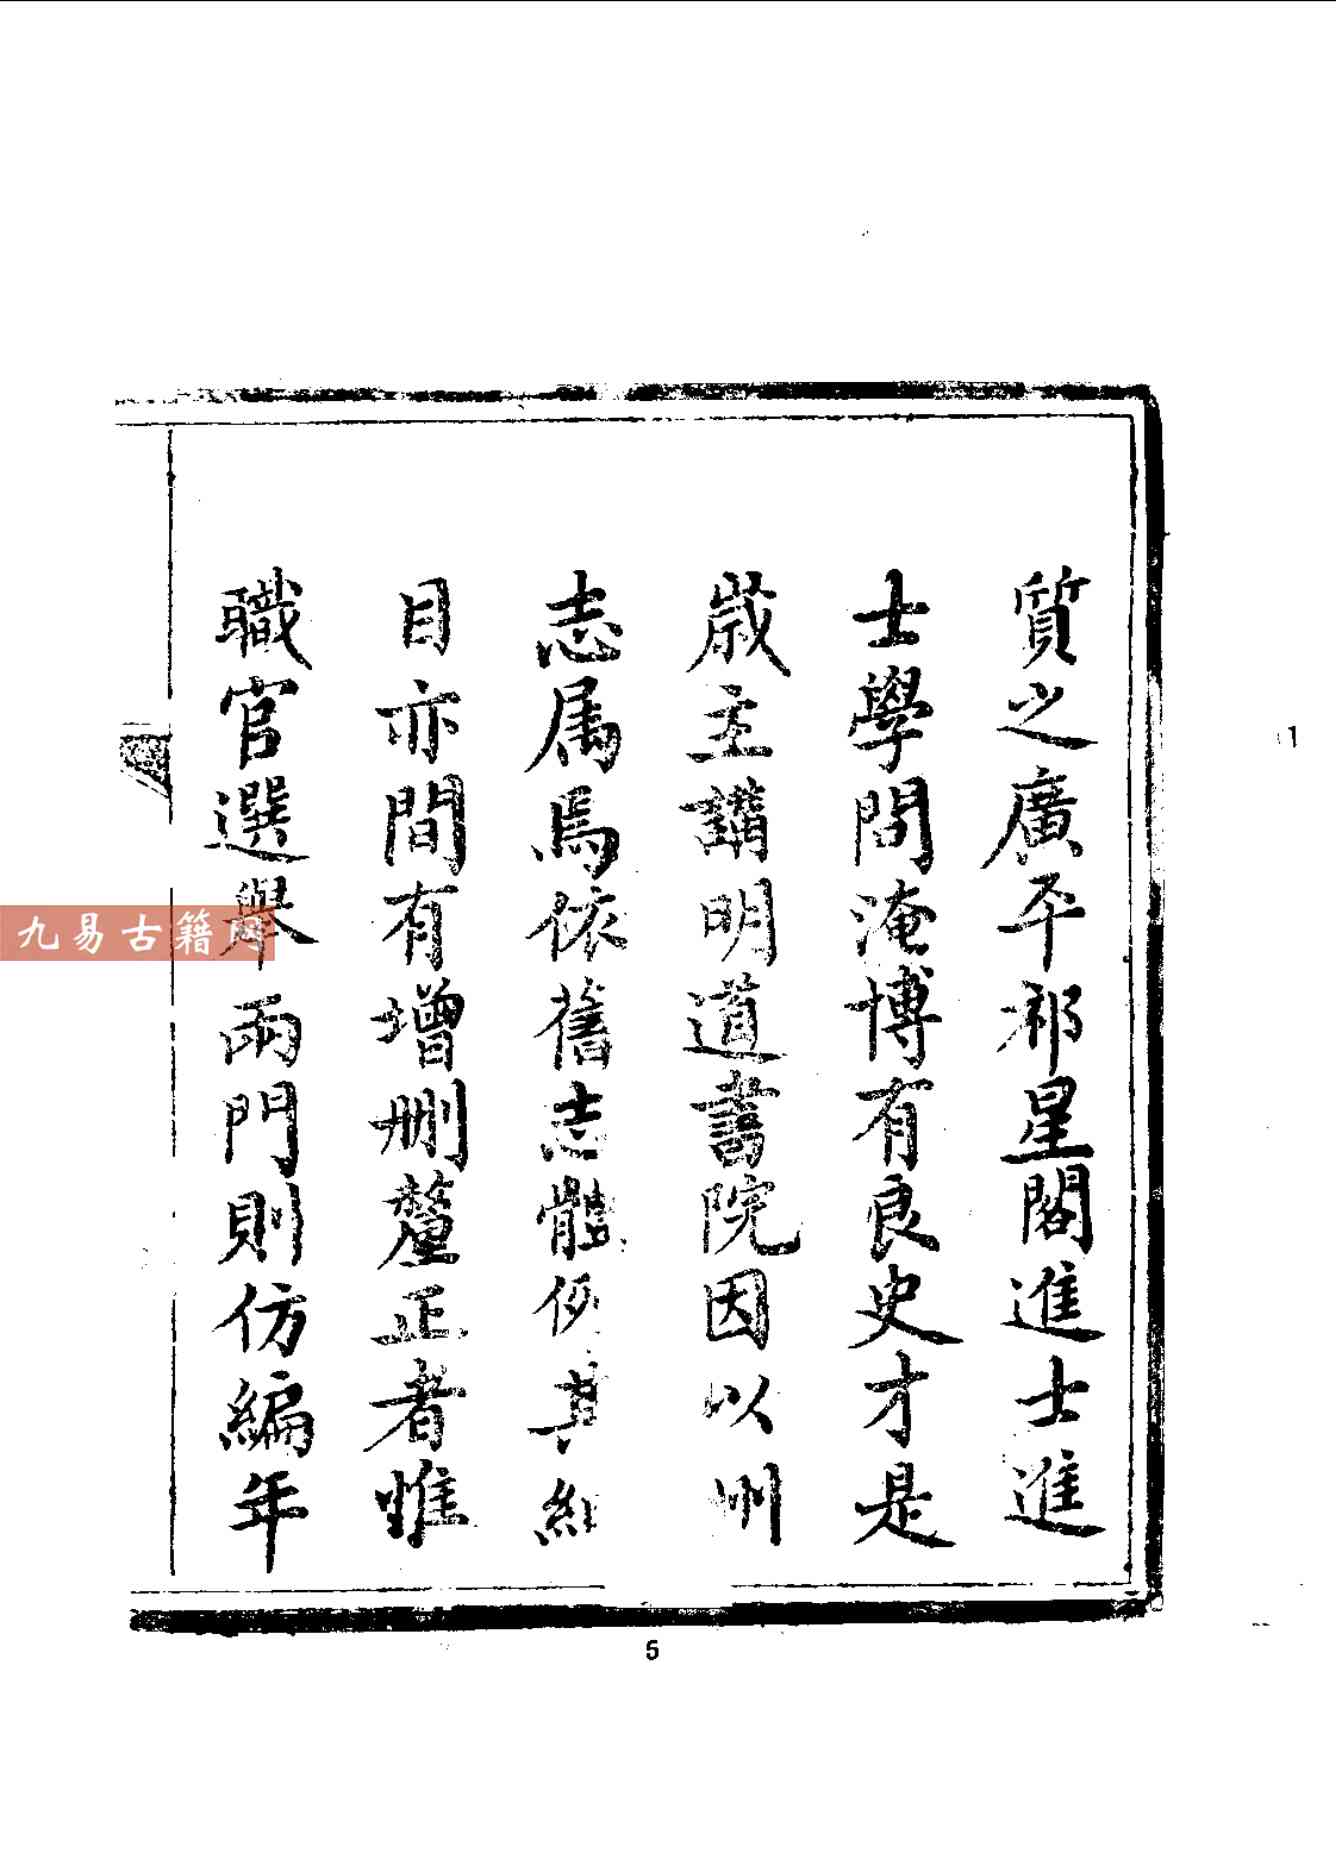 質之廣平祁星閣進士進
士學問淹博有良史才是
歲主講明道書院因以州
志属焉依舊志體例其細
目亦間有增刪釐正者惟
職官選舉兩門則仿編年
九易古籍网
5